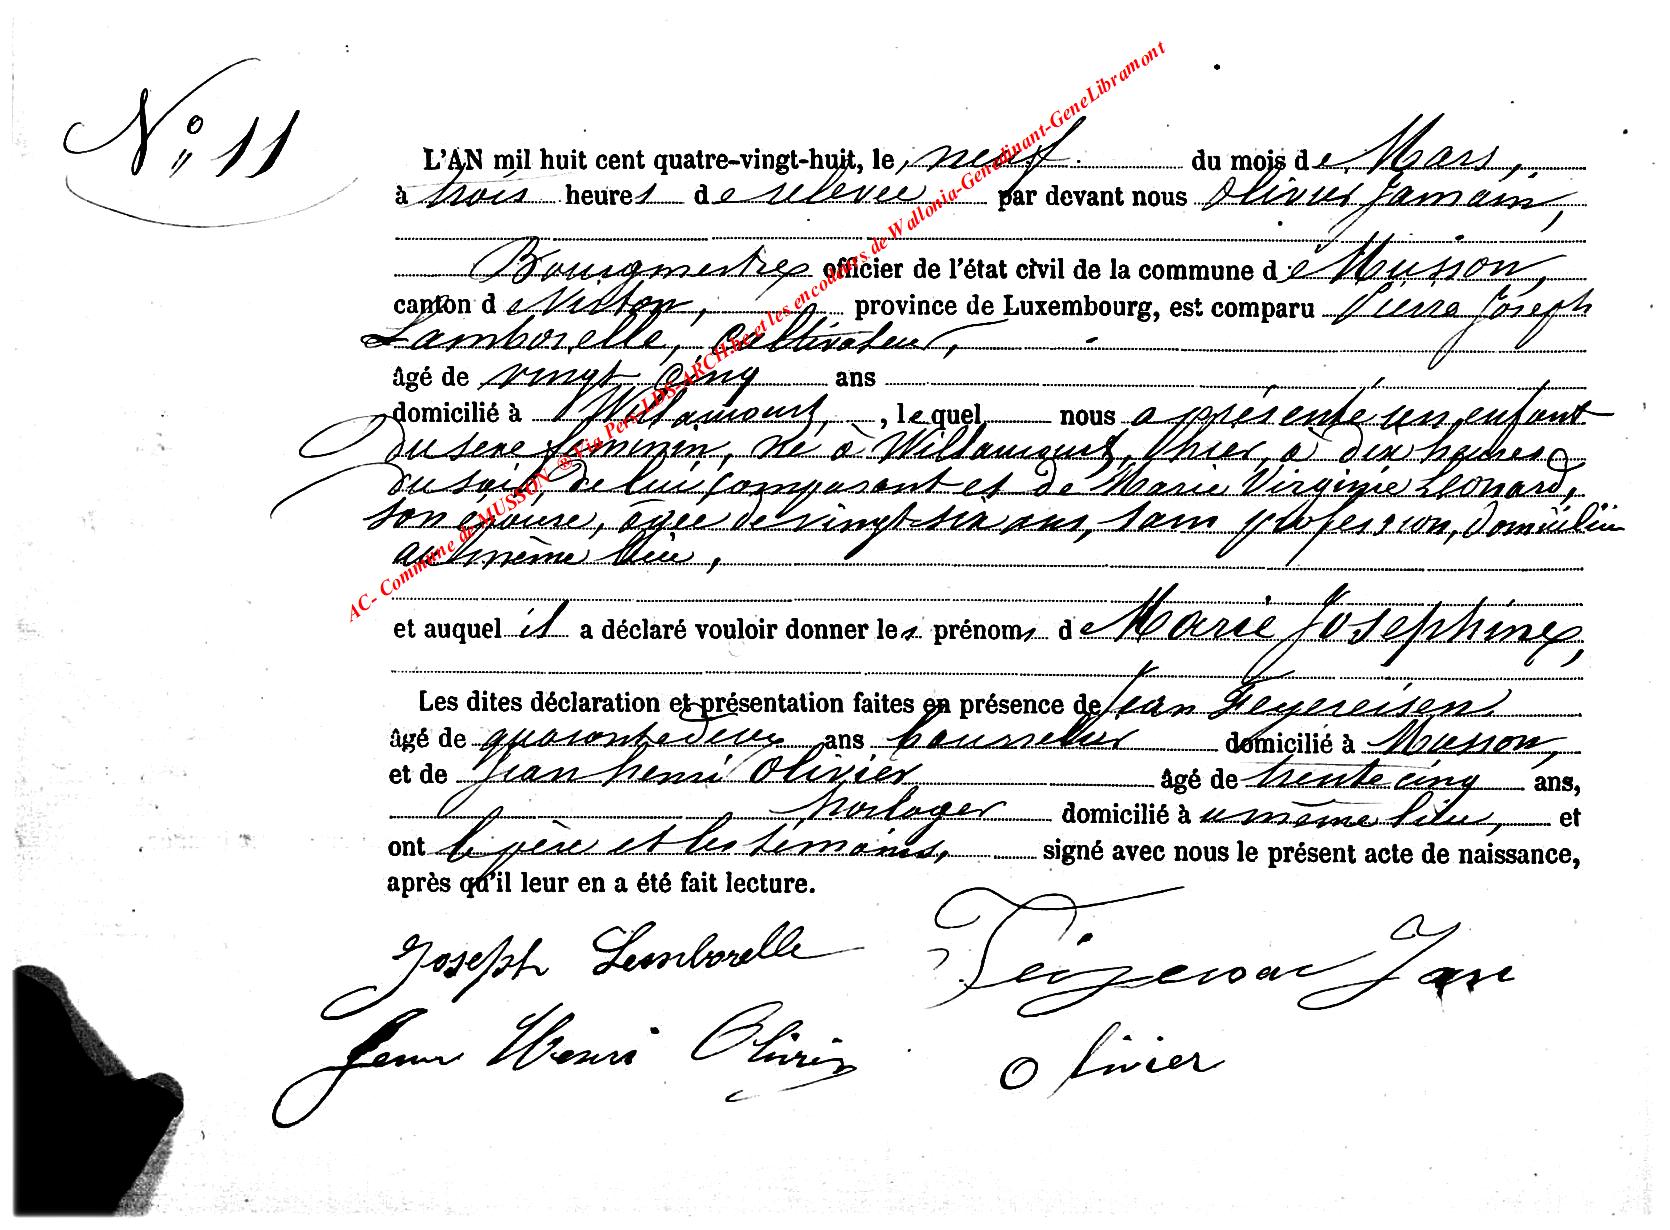 N° 11
L'AN mil huit cent quatre-vingt-huit, le neuf du mois de Mars,
à trois heures de relevée par devant nous Olivier Jamain,
Bourgmestre officier de l'état civil de la commune de Musson,
canton de Virton, province de Luxembourg, est comparu Pierre Joseph
Lamborelle, Cultivateur,
âgé de vingt cinq ans
domicilié à Willancourt, lequel nous a présenté un enfant
du sexe féminin, né à Willancourt, hier, à dix heures
du soir, de lui comparant et de Marie Virginie Leonard,
son épouse, âgée de vingt six ans, sans profession, domiciliée
au même lieu,
et auquel il a déclaré vouloir donner les prénoms de Marie Josephine,
Les dites déclaration et présentation faites en présence de Jean Feyereisen
âgé de quarante deux ans domicilié à Musson,
et de Jean henri Olivier âgé de trente cinq ans,
horloger domicilié au même lieu, et
ont le père et les témoins, signé avec nous le présent acte de naissance,
après qu'il leur en a été fait lecture.
Joseph Lamborelle
Jean Henri Olivier
Olivier
AC- Commune de MUSSON ® Via Pers-LDS-ARCH.be et les encodeurs de Wallonia-Genedinant-GeneLibramont